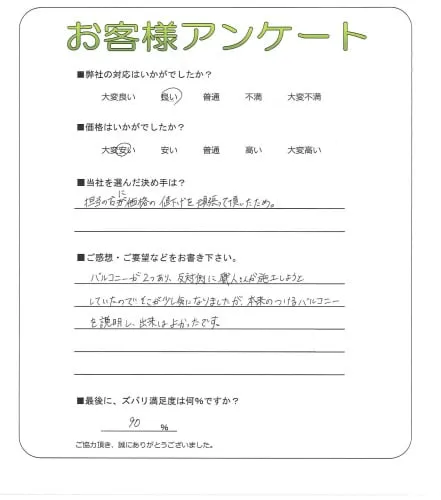 お客様アンケート
■弊社の対応はいかがでしたか？
大変良い 良い 普通 不満 大変不満
■価格はいかがでしたか？
大変安い 安い 普通 高い 大変高い
■当社を選んだ決め手は？
担当の方に価格の値下げを頑張って頂したため。
■ご感想・ご要望などをお書き下さい。
バルコニーが2つあり、反対側に職人さんが施工しようと
していたのでそこが少し気になりましたが、本来のつけるバルコニー
を説明し、出来はよかったです。
■最後に、ズバリ満足度は何%ですか？
90 %
ご協力頂き、誠にありがとうございました。